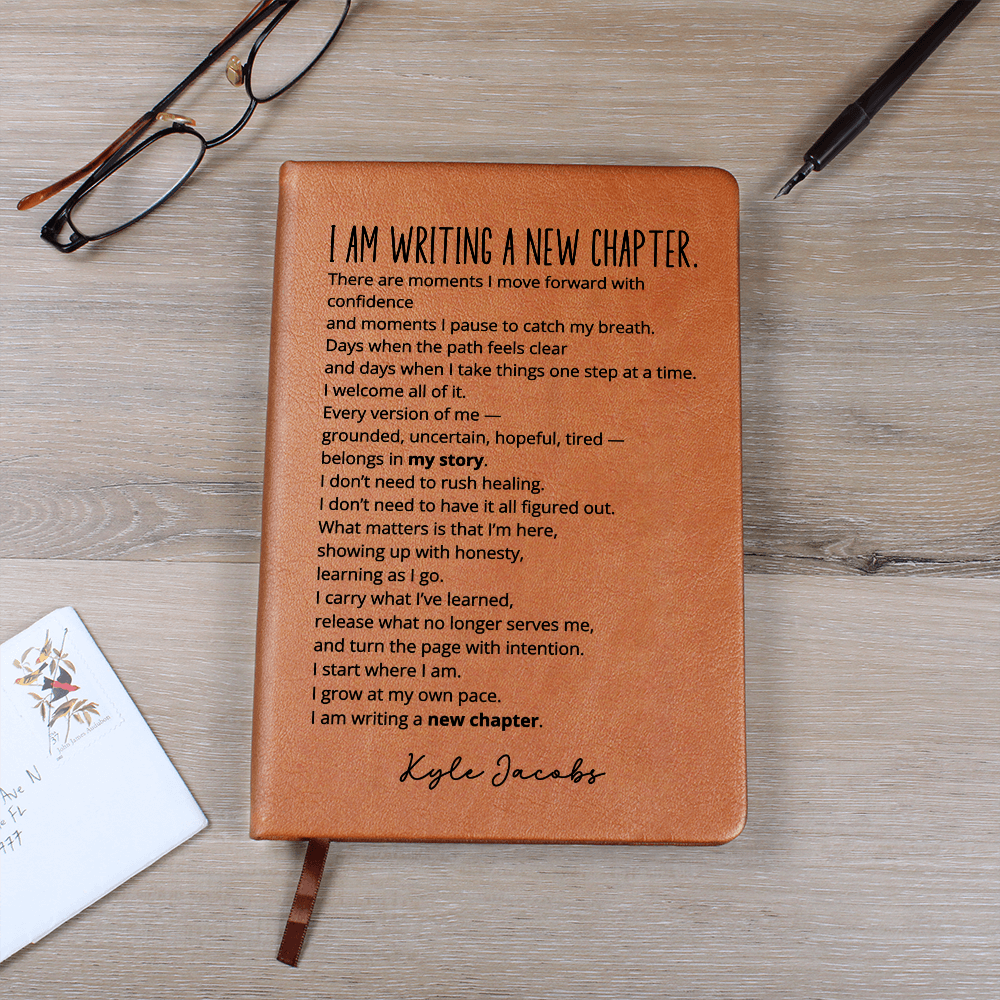 I AM WRITING A NEW CHAPTER.
There are moments I move forward with
confidence
and moments I pause to catch my breath.
Days when the path feels clear
and days when I take things one step at a time.
I welcome all of it.
Every version of me —
grounded, uncertain, hopeful, tired —
belongs in my story.
I don’t need to rush healing.
I don’t need to have it all figured out.
What matters is that I’m here,
showing up with honesty,
learning as I go.
I carry what I’ve learned,
release what no longer serves me,
and turn the page with intention.
I start where I am.
I grow at my own pace.
I am writing a new chapter.
Kyle Jacobs
37
John James Audubon
Ave N
FL
977